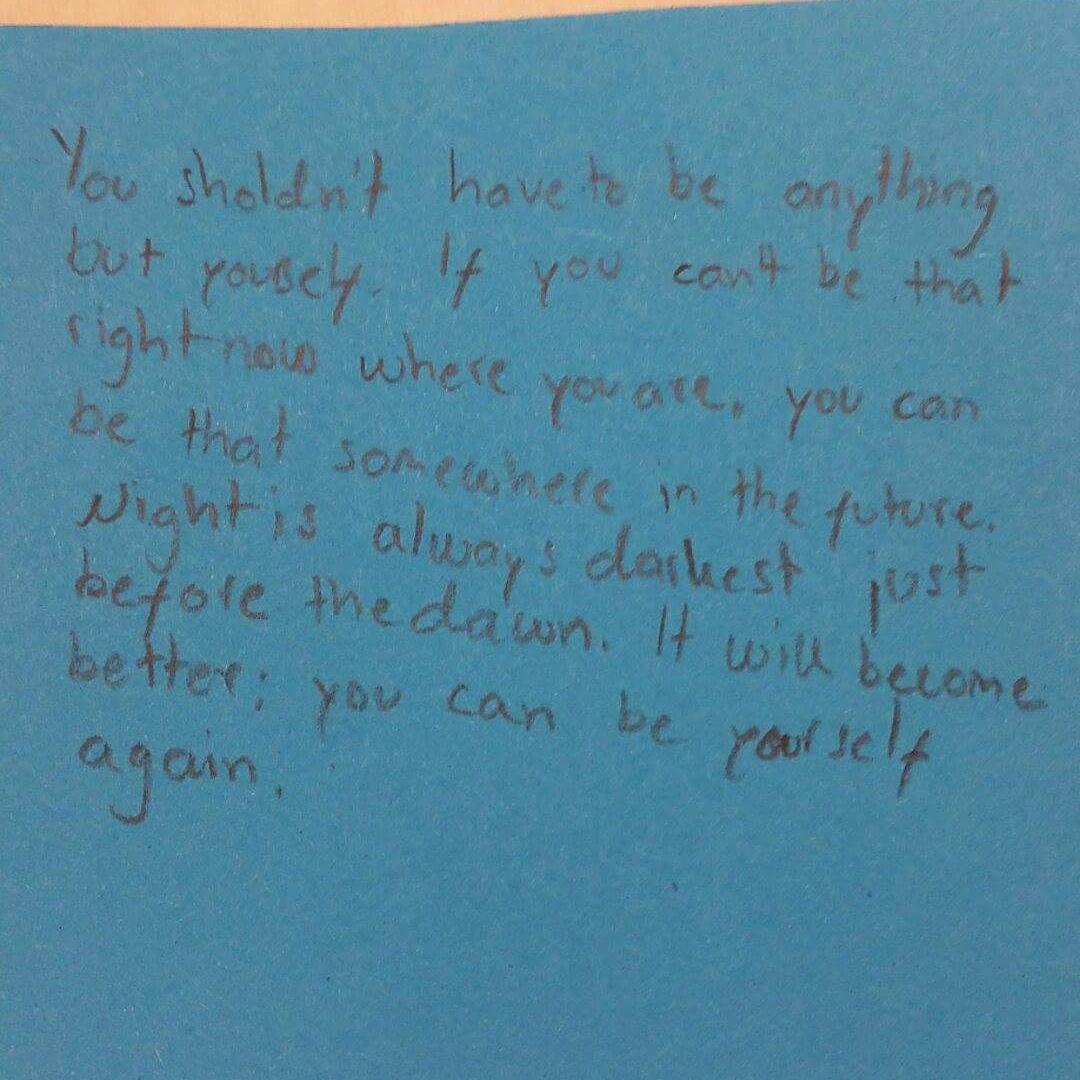 You sholdn't have to be anything
but yousely. If you can't be that
right now where you are, you can
be that somewhere in the future.
Night is always darkest just
before the dawn. It will become
better; you can be yourself
again.